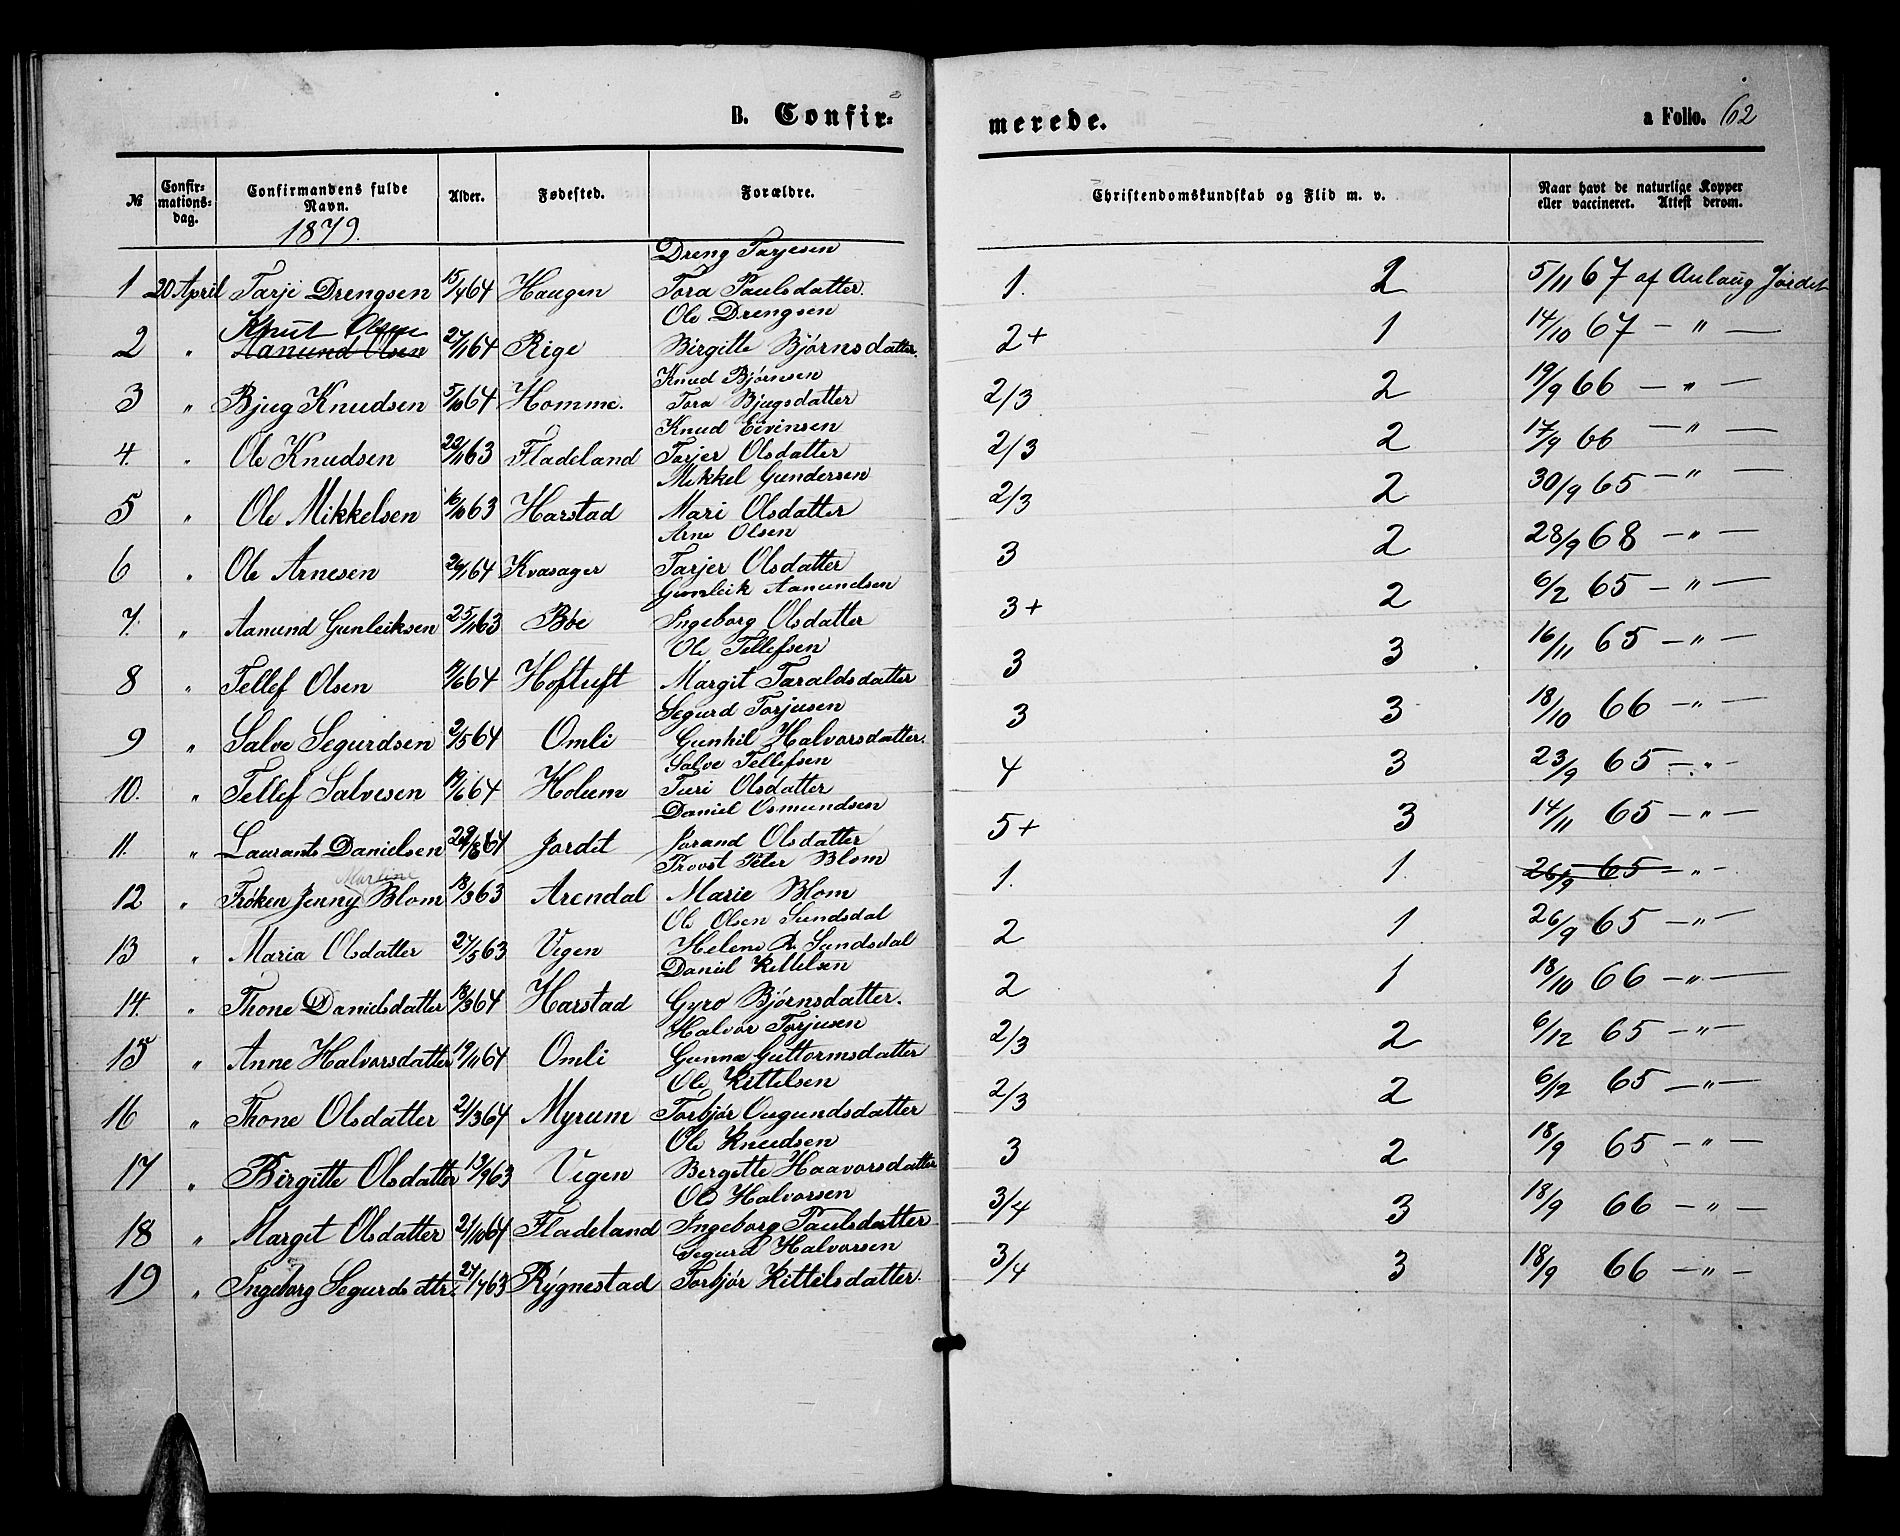 B. Confir=
merede.
a Folio. 62
№ Confir=mations=dag. Confirmandens fulde Navn. Alder. Fødested. Forældre. Christendomskundskab og Flid m. v. Naar havt de naturlige Kopper eller vaccineret. Attest derom.
1879.
Dreng Tarjesen
1 20 April Tarje Drengsen 15/4 64 Haugen Tora Paulsdatter. 1. 2 5/11 67 af Aulaug Jordet
Knut Olsen Ole Drengsen
2 " Aanund Olsen 27/11 64 Rige Birgitte Bjørnsdatter. 2+ 1 14/10 67 — " —
Knud Bjørnsen
3 " Bjug Knudsen 5/10 64 Homme. Tora Bjugsdatter 2/3 2 19/9 66 — " —
Knud Eivinsen
4. " Ole Knudsen 22/11 63 Fladeland Tarjer Olsdatter 2/3 2 17/9 66 — " —
Mikkel Gundersen
5 " Ole Mikkelsen 16/10 63 Harstad Mari Olsdatter 2/3 2 30/9 65 — " —
Arne Olsen
6 " Ole Arnesen 26/1 64 Kvasager Tarjer Olsdatter 3 2 28/9 68 — " —
Gunleik Aanundsen
7. " Aanund Gunleiksen 25/11 63 Bøe Ingeborg Olsdatter 3+ 2 6/2 65 — " —
Ole Tellefsen
8 " Tellef Olsen /6 64 Hoftuft Margit Taraldsdatter 3 3 16/11 65 — " —
Segurd Torjusen
9 " Salve Segurdsen 2/5 64 Omli Gunhil Halvorsdatter. 3 3 18/10 66 — " —
Salve Tellefsen
10. " Tellef Salvesen 19/6 64 Holum Turi Olsdatter 4 3 23/9 65 — " —
Daniel Osmundsen
11. " Laurants Danielsen 29/8 64 Jordet Jorand Olsdatter 5+ 3 14/11 65 — " —
Martine Provst Peter Blom
12 " Frøken Jenny Blom 18/3 63 Arendal Marie Blom 1. 1. 26/9 65 — " —
Ole Olsen Sundsdal
13 " Maria Olsdatter 27/5 63 Vegen Helene R. Sundsdal 2 1 26/9 65 — " —
Daniel Kittelsen
14. " Thone Danielsdatter 18/3 64 Harstad Gyro Bjørnsdatter. 2 1 18/10 66 — " —
Halvor Torjusen
15 " Anne Halvorsdatter 19/11 64 Omli Gunna Guttormsdatter 2/3 2 6/12 65 — " —
Ole Kittelsen
16 " Thone Olsdatter 21/3 64 Myrum Torbjør Ougundsdatter 2/3 2 6/2 65 — " —
Ole Knudsen
17 " Birgitte Olsdatter 13/9 63 Vegen Bergitte Haavorsdatter 3 2 18/9 65 — " —
Ole Halvorsen
18 " Margit Olsdatter 21/10 64 Fladeland Ingeborg Paulsdatter 3/4 3 18/9 66 — " —
Segurd Halvorsen
19 " Ingeborg Segurdsdtr. 27/7 63 Rygnestad Torbjør Kittilsdatter. 3/4 3 18/9 66 — " —